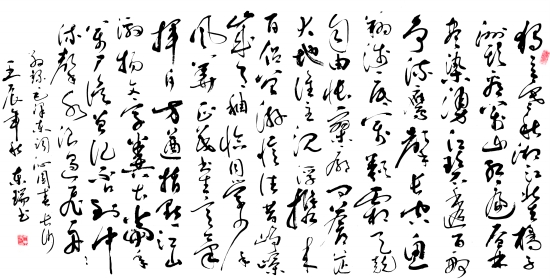 独立寒秋湘江北去橘子
洲头看万山红遍层林
尽染漫江碧透百舸
争流鹰击长空鱼
翔浅底万类霜天竞
自由怅寥廓问苍茫
大地谁主沉浮携来
百侣曾游忆往昔峥嵘
岁月稠恰同学少年
风华正茂书生意气
挥斥方遒指点江山
激扬文字粪土当年
万户侯曾记否到中
流击水浪遏飞舟
毛泽东词沁园春长沙
壬辰年秋东瑞书